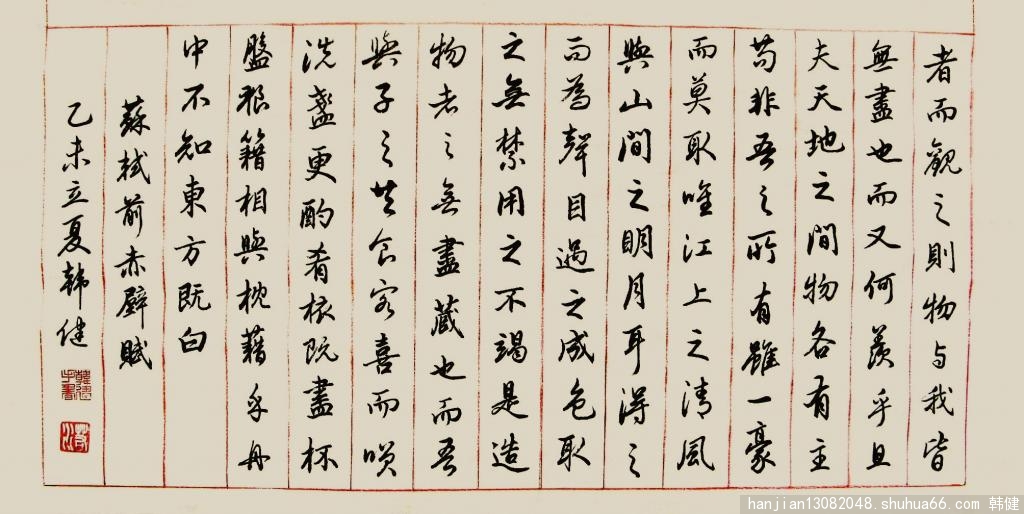 者而觀之則物与我皆
無盡也而又何羨乎且
夫天地之間物各有主
苟非吾之所有雖一豪
而莫取唯江上之清風
與山間之明月耳得之
而為聲目過之成色取
之無禁用之不竭是造
物者之無盡藏也而吾
與子之共食客喜而咲
洗盞更酌肴核既盡杯
盤狼籍相與枕藉乎舟
中不知東方既白
蘇軾前赤壁賦
乙未立夏韩健
韓健手書
hanjian13082048.shuhua66.com 韩健